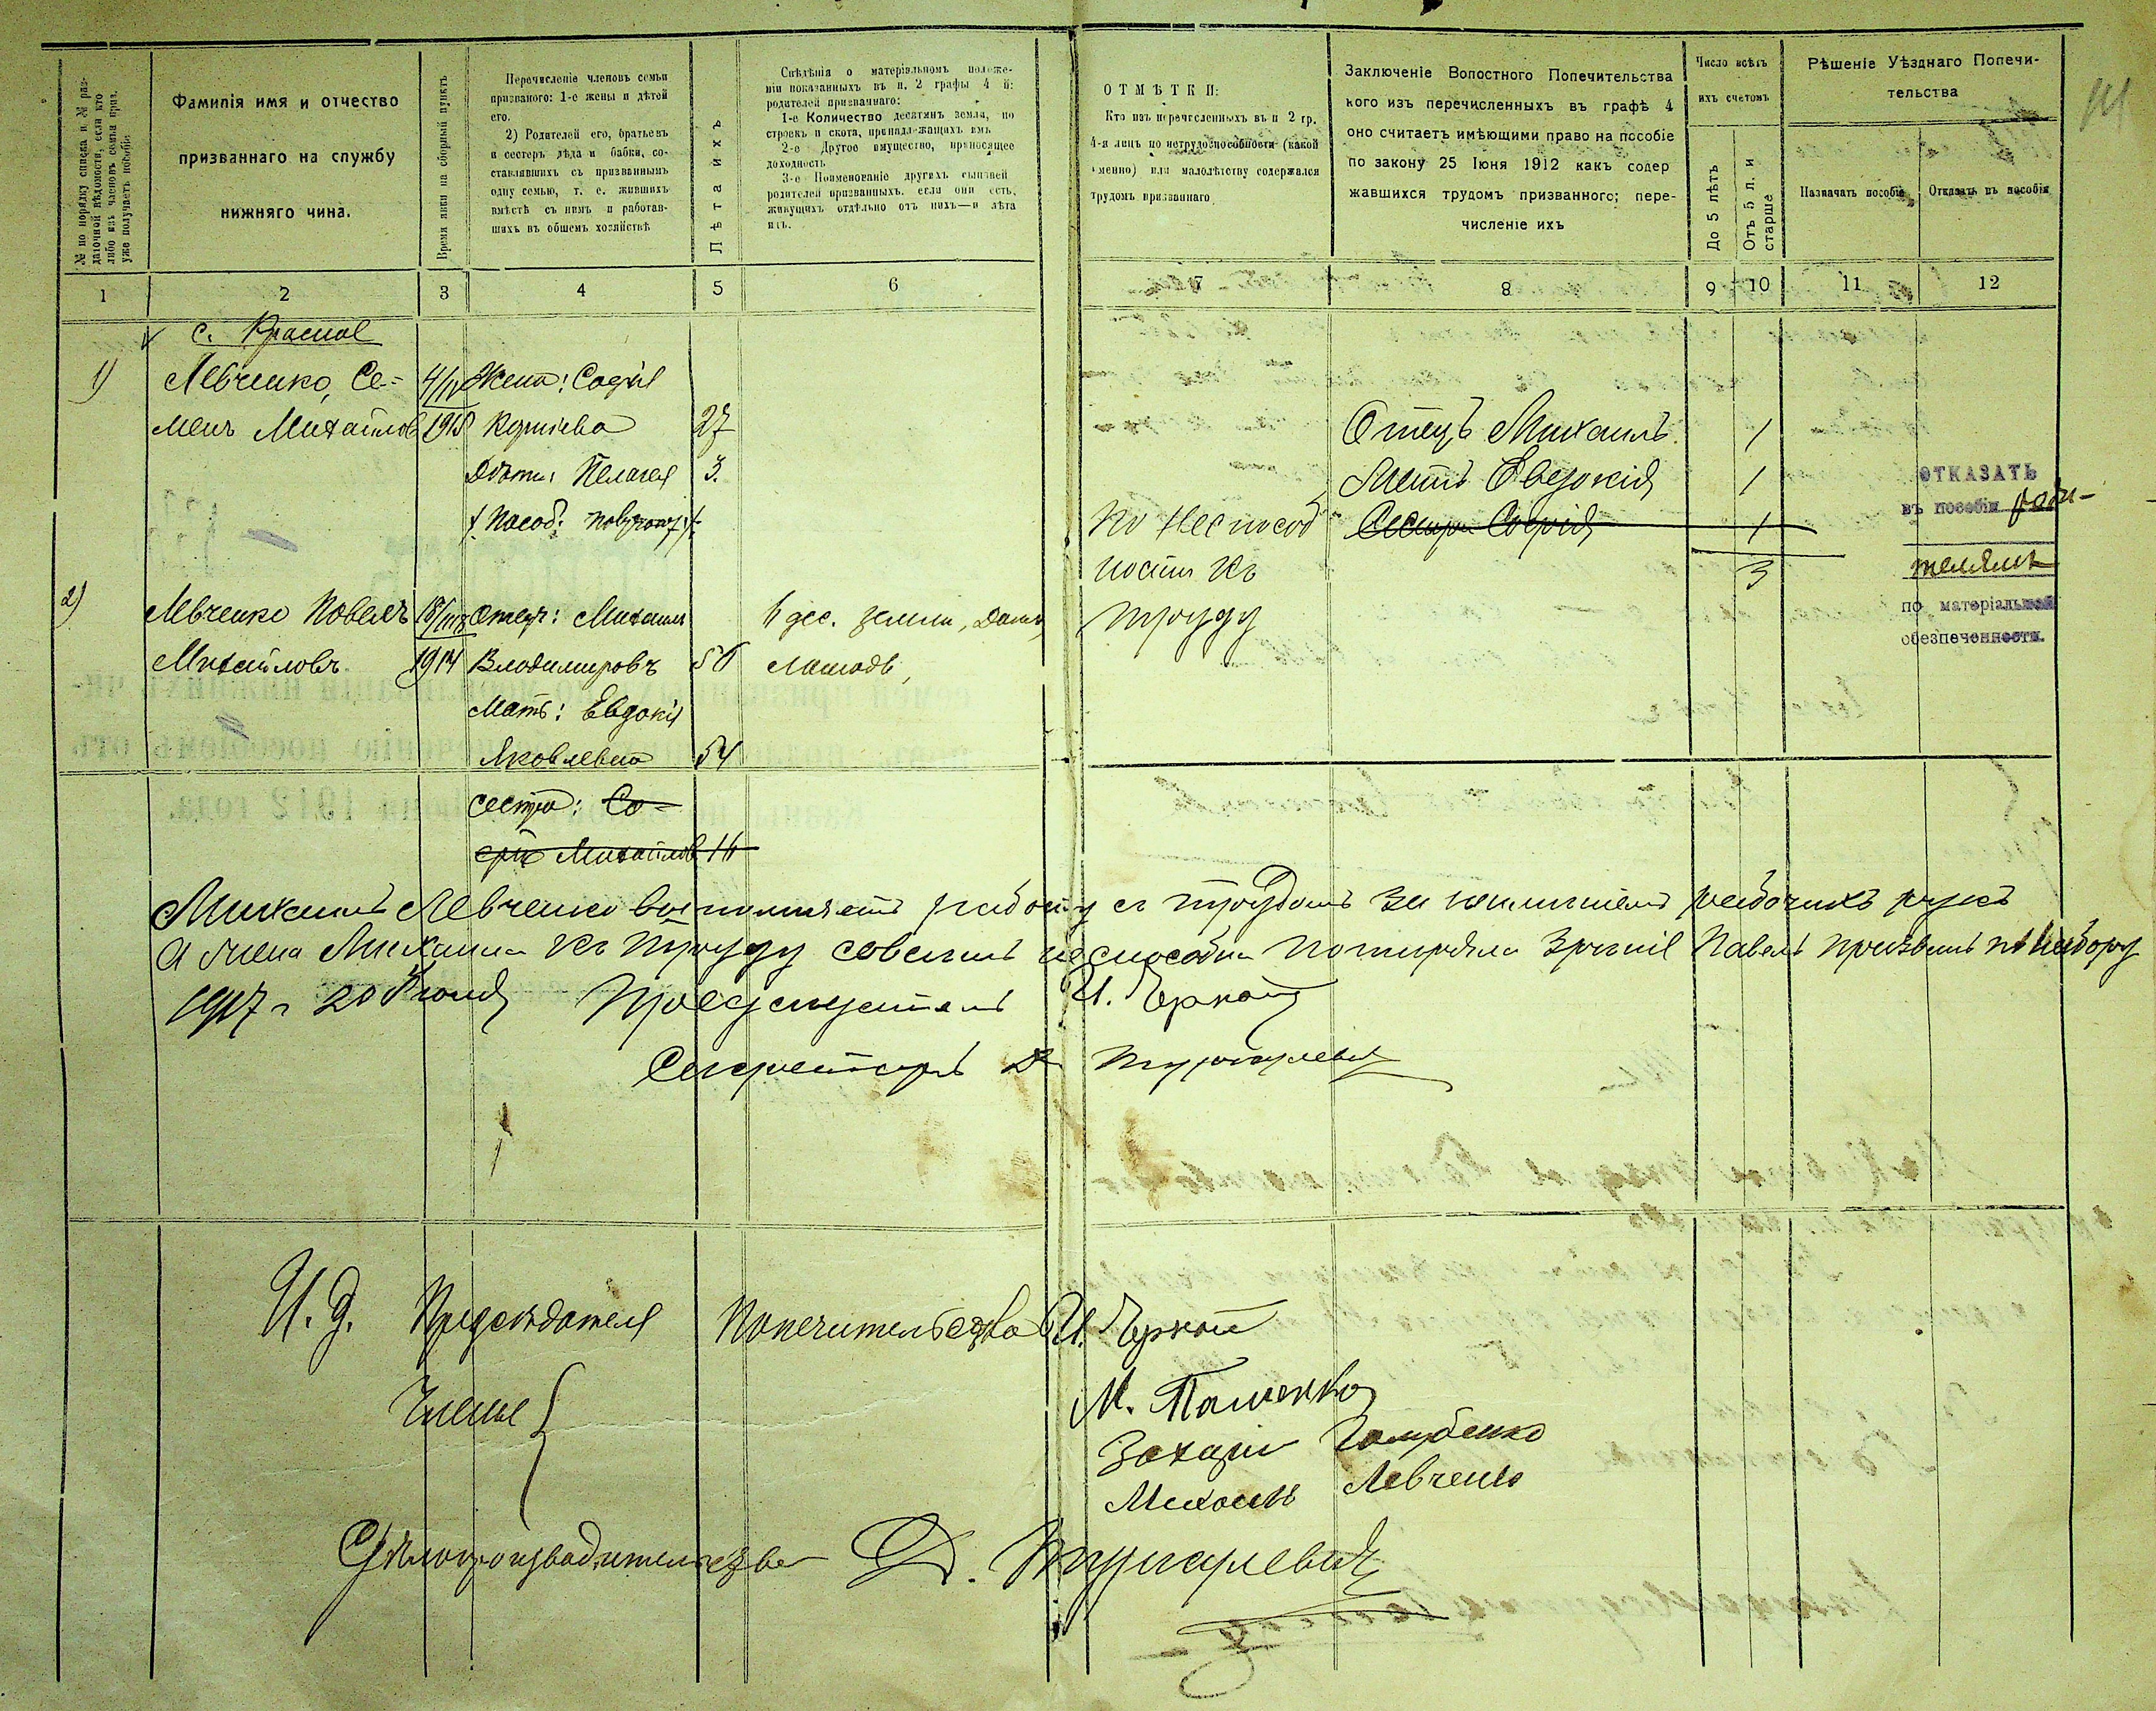 № по порядку списка и № раз-
даточной вѣдомости, если кто
либо изъ членовъ семьи приз.
уже получаетъ пособіе
Фамилія имя и отчество
призваннаго на службу
нижняго чина.
Время явки на сборный пунктъ
Перечисленіе членовъ семьи
призваного: 1-е жены и дѣтей
его.
2) Родителей его, братьевъ
и сестеръ дѣда и бабки, со-
ставлявшихъ съ призваннымъ
одну семью, т. е. жившихъ
вмѣстѣ съ нимъ и работав-
шихъ въ общемъ хозяйствѣ
Лѣта ихъ
Свѣдѣнія о матеріяльномъ положе-
ніи показанныхъ въ п. 2 графы 4 й:
родителей призваннаго:
1-е Количество десятинъ земли, по
строекъ и скота, принадлежащихъ имъ
2-е Другое имущество, приносящее
доходность
3-е Поименованіе другихъ сыновей
родителей призванныхъ, если они есть,
живущихъ отдѣльно отъ нихъ—и лѣта
ихъ.
ОТМѢТКИ:
Кто изъ перечсленныхъ въ п 2 гр.
4-я лицъ по нетрудоспособности (какой
именно) или малолѣтству содержался
трудомъ призваннаго
Заключеніе Волостного Попечительства
кого изъ перечисленныхъ въ графѣ 4
оно считаетъ имѣющими право на пособіе
по закону 25 Іюня 1912 какъ содер
жавшихся трудомъ призванного; пере-
численіе ихъ
Число всѣхъ
ихъ счетомъ
До 5 лѣтъ
Отъ 5 л. и
старше
Рѣшеніе Уѣзднаго Попечи-
тельства
Назначать пособіе
Отказать въ пособіи
1 2 3 4 5 6 7 8 9 10 11 12
с. Красное
1) Левченко, Се- Жена: Софія
менъ Михайлов 1915 27 Отецъ Михаилъ 1
Дѣти: Пелагея 3. Мать Евдокія 1
ОТКАЗАТЬ
Пособ: получают По неспособ Сестра Софія 1
въ пособіи роди-
ности къ 3
телямъ
2) Левченко Павелъ Отецъ: Михаилъ 6 дес. земли, Домъ, труду
по матеріальной
Михайловъ 1914 Владимировъ 56 лошадь,
обезпеченности.
Мать: Евдокія
Яковлевна 54
сестра: Со-
фія Михайлов 16
Михаилъ Левченко выполняетъ работу съ трудомъ за неимѣніемъ рабочихъ рукъ
А жена Михаила къ труду совсемъ неспособна потиряла зрѣніе Павелъ призванъ по набору
1917 г 20 Іюня Предсѣдатель И.
Секретарь
И. д. Председателя Попечительства И.
Члены М.
Захарій Голубенко
Михаилъ Левченко
Дѣлопроизводитель Д.